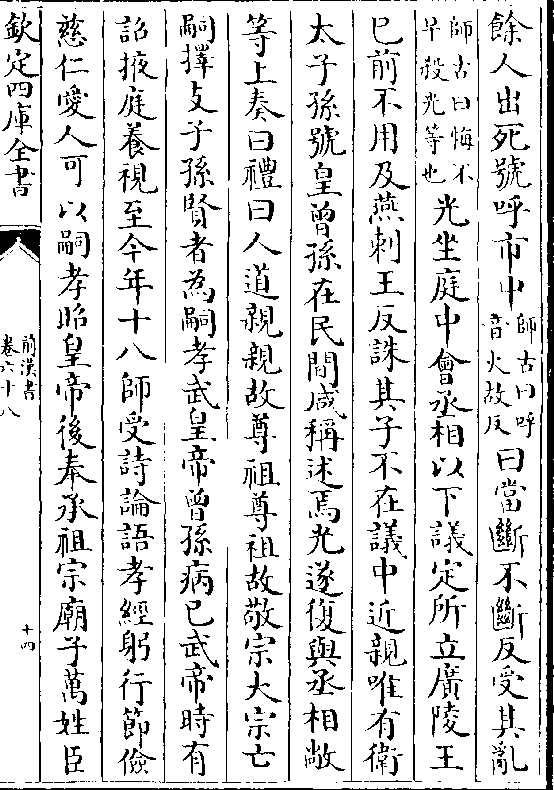 餘人出死號呼市中師古曰呼音火故反曰當斷不斷反受其亂
師古曰悔不早殺光等也光坐庭中會丞相以下議定所立廣陵王
已前不用及燕刺王反誅其子不在議中近親唯有衛
太子孫號皇曾孫在民間咸稱述焉光遂復與丞相敞
等上奏曰禮曰人道親親故尊祖尊祖故敬宗大宗亡
嗣擇支子孫賢者為嗣孝武皇帝曾孫病已武帝時有
詔掖庭養視至今年十八師受詩論語孝經躬行節儉
慈仁愛人可以嗣孝昭皇帝後奉承祖宗廟子萬姓臣
欽定四庫全書
前漢書
卷六十八
十四